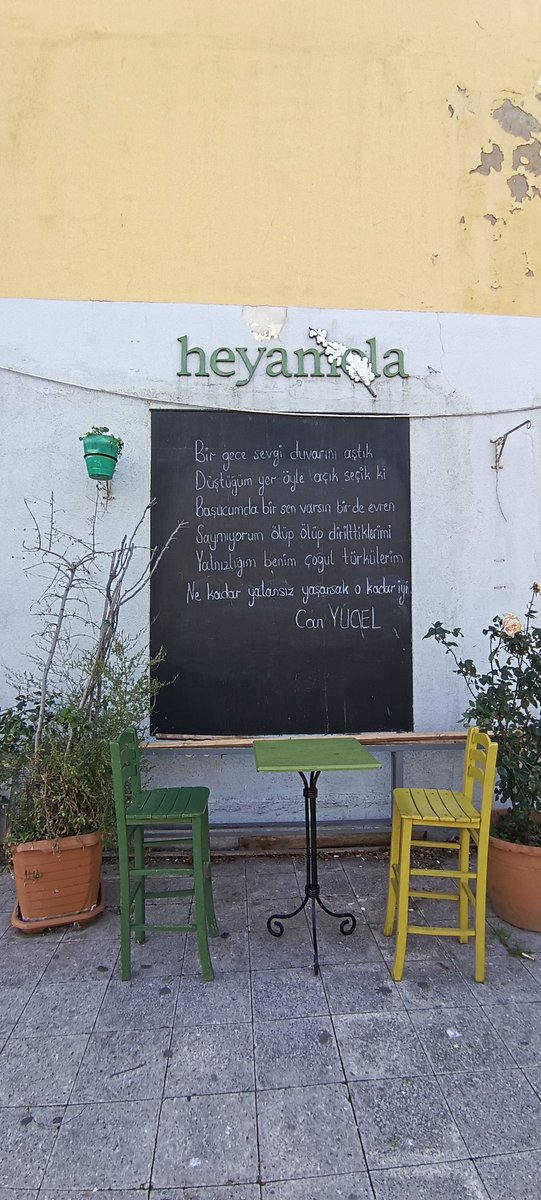 heyamola
Bir gece sevgi duvarını aştık
Düştüğüm yer öyle açık seçik ki
Başucumda bir sen varsın bir de evren
Saymıyorum ölüp ölüp dirilttiklerimi
Yalnızlığım benim çoğul türkülerim
Ne kadar yalansız yaşarsak o kadar iyi
Can YÜCEL